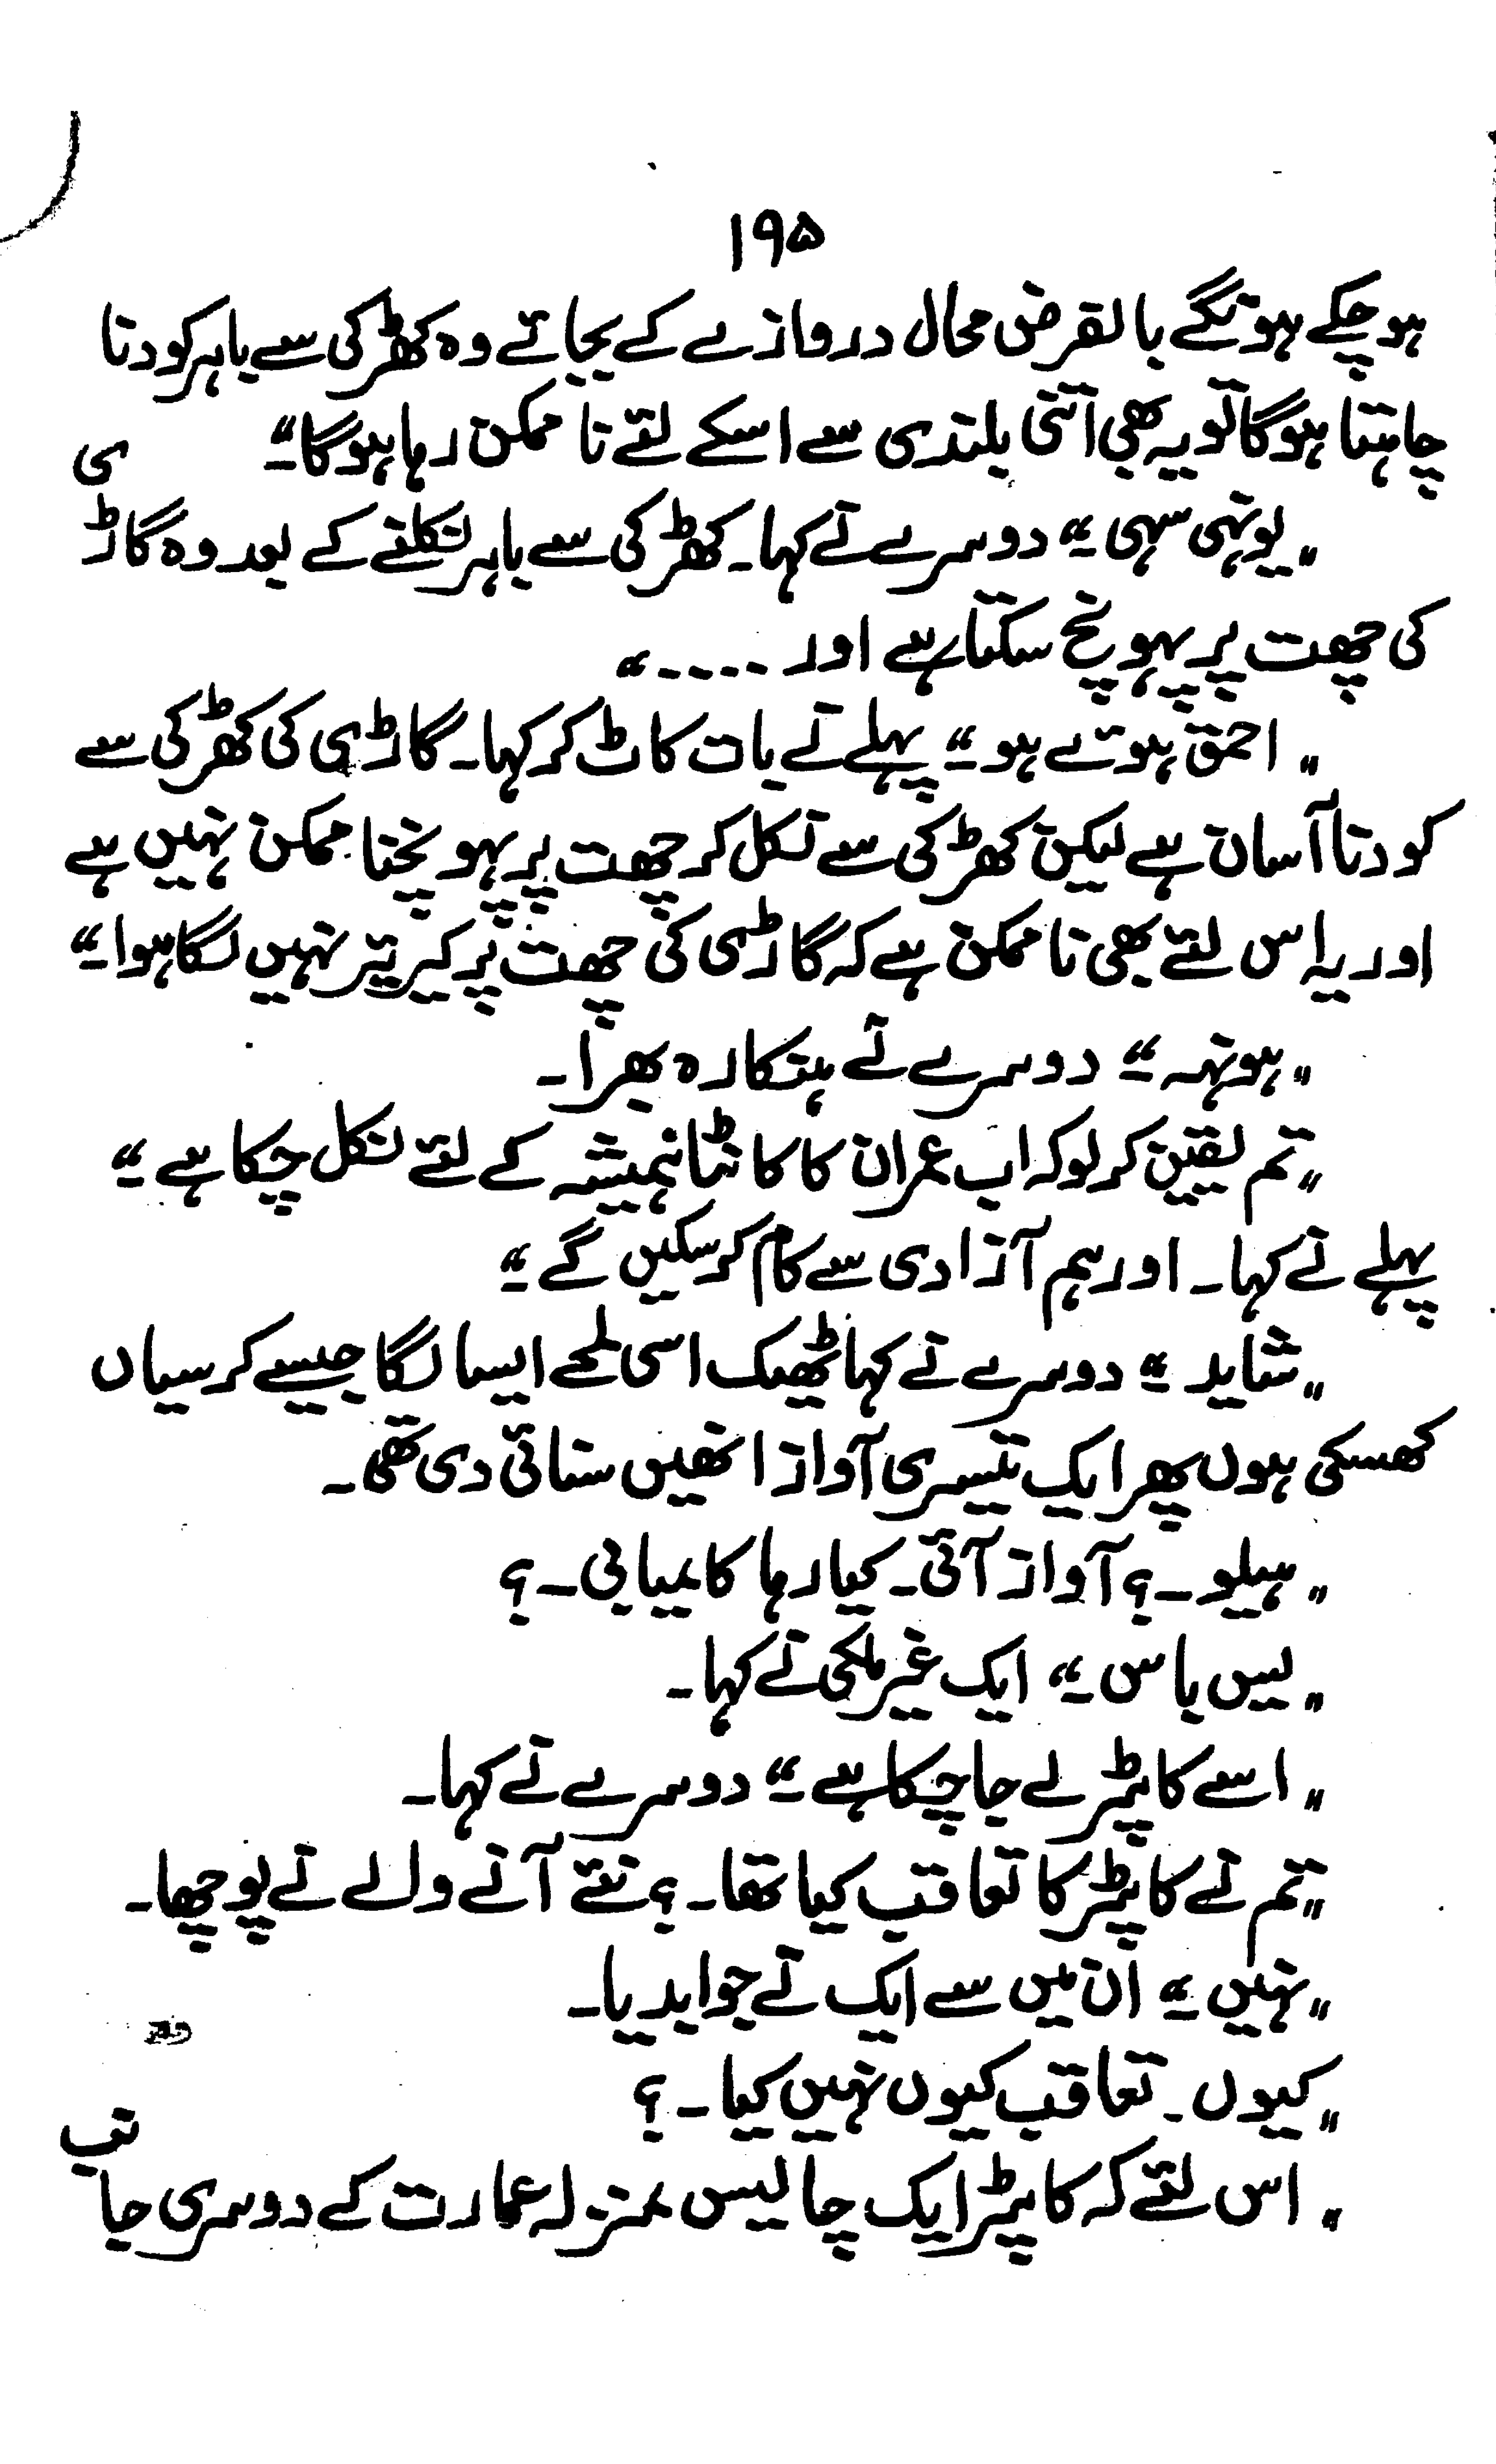 ۱۹۵
ہو چکے ہونگے بالفرض محال دروازے کے بجائے وہ کھڑکی سے باہر کودنا
چاہتا ہوگا تو یہ بھی اتنی بلندی سے اسکے لئے نا ممکن رہا ہوگا۔"
"یونہی سہی۔" دوسرے نے کہا۔ کھڑکی سے باہر نکلنے کے بعد وہ گاڑی
کی چھت پر پہونچ سکتا ہے اور ....."
"احمق ہوتے ہو۔" پہلے نے بات کاٹ کر کہا۔ گاڑی کی کھڑکی سے
کودنا آسان ہے لیکن کھڑکی سے نکل کر چھت پر پہونچنا ممکن نہیں ہے
اور یہ اس لئے بھی نا ممکن ہے کہ گاڑی کی چھت پر کیریئر نہیں لگا ہوا۔"
"ہونہہ۔" دوسرے نے ہنکارہ بھرا۔
"تم یقین کر لو کہ اب عمران کا کانٹا ہمیشہ کے لئے نکل چکا ہے۔"
پہلے نے کہا۔ اور ہم آزادی سے کام کر سکیں گے۔"
"شاید۔" دوسرے نے کہا ٹھیک اسی لمحے ایسا لگا جیسے کرسیاں
کھسکی ہوں پھر ایک تیسری آواز انھیں سنائی دی تھی۔
"ہیلو۔؟ آواز آئی۔ کیا رہا کامیابی۔؟
"یس باس۔" ایک غیر ملکی نے کہا۔
"اسے کاپٹر لے جا چکا ہے۔" دوسرے نے کہا۔
"تم نے کاپٹر کا تعاقب کیا تھا۔؟ نئے آنے والے نے پوچھا۔
"نہیں۔" ان میں سے ایک نے جواب دیا۔
"کیوں۔ تعاقب کیوں نہیں کیا۔؟
"اس لئے کہ کاپٹر ایک چالیس منزلہ عمارت کے دوسری جانب